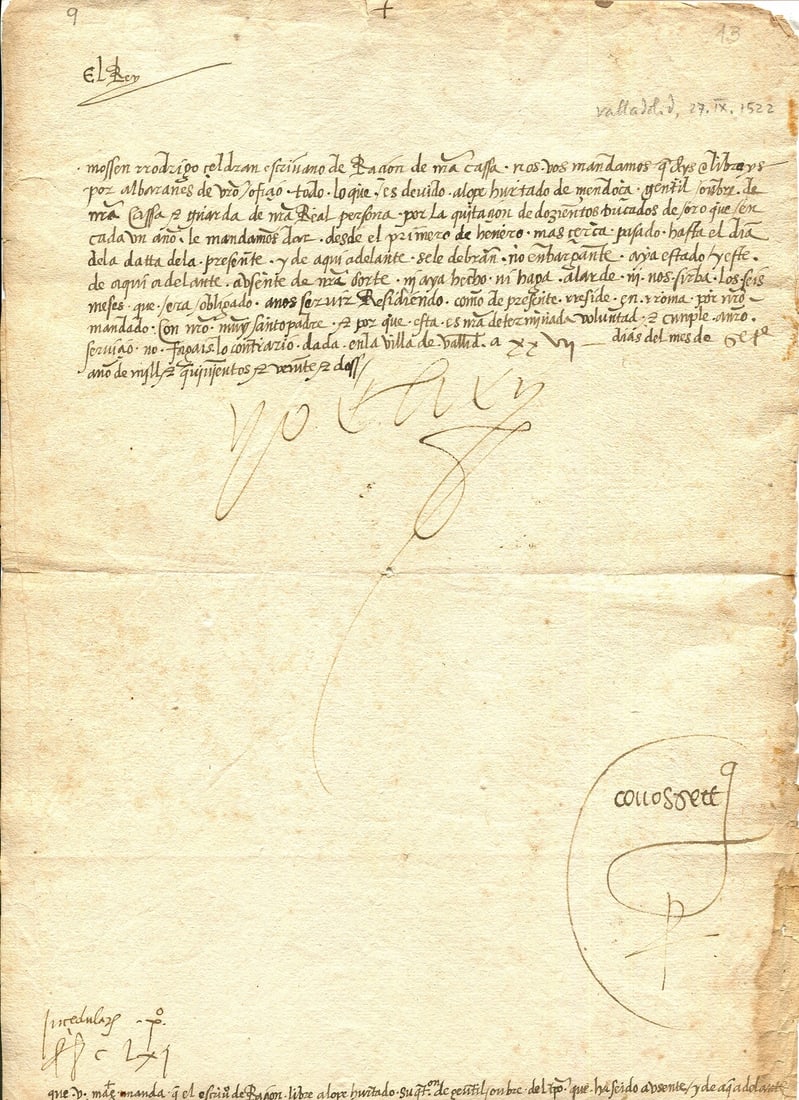 9
13
El Rey
valladolid, 27.IX.1522
mossen rrodrigo çeldran escriuano de Raçon de nr̃a cassa · nos · vos mandamos q̃ deys e libreys
por albaranes de vr̃o ofiçio · todo · lo que · es devido · a lope hurtado de mendoça · gentil ombre · de
nr̃a Cassa e guarda de nr̃a Real persona · por la quitaçion de dozientos ducados de oro que en
cada vn año · le mandamos dar · desde el primero de henero · mas çerca pasado · hasta el dia
dela datta dela presente · y de aqui adelante · se le debran · no enbargante · aya estado y este ·
de aqui adelante · absente de nr̃a Corte · ni aya hecho · ni haga · alarde · ni nos sirba · los seis
meses · que sera obligado · a nos servir Residiendo · como de presente · rreside · en · rroma · por nr̃o
mandado · Con nr̃o muy santo padre · e por que esta es nr̃a determinada voluntad · e cunple a nr̃o ·
serviçio · no · fagais lo contrario · dada · en la villa de vallid · a xxvii dias del mes de Set^e
año de mill e quinientos e veinte e dos
yo el Rey
couos secretº
p
Incedular p^o
c lxj
que v. mag^t manda q̃ el escriu^o de Raçon · libre a lope hurtado · su qt^on de gentil ombre · del tpo^ que ha seido avsente / y de aqui adelante